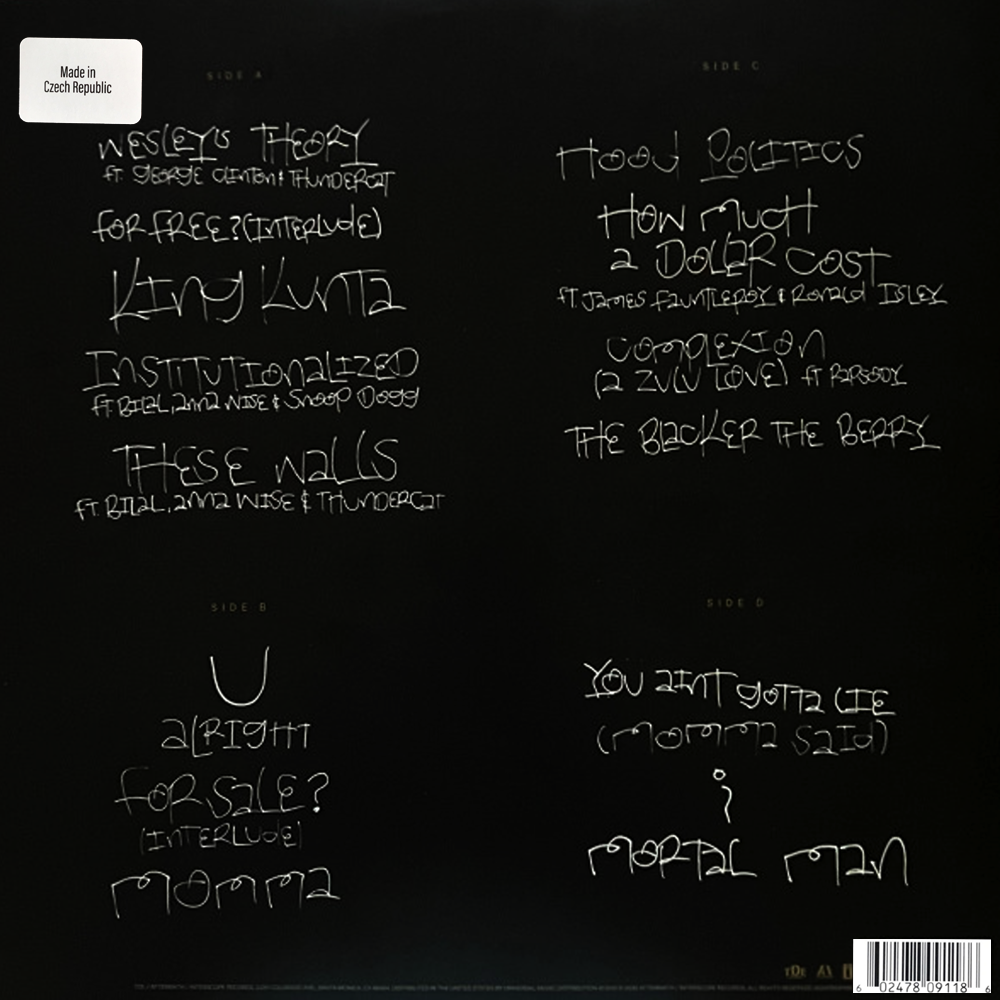 Made in
Czech Republic
SIDE A
WESLEY'S THEORY
FT. GEORGE CLINTON & THUNDERCAT
FOR FREE? (INTERLUDE)
KING KUNTA
INSTITUTIONALIZED
FT. BILAL, ANNA WISE & SNOOP DOGG
THESE WALLS
FT. BILAL, ANNA WISE & THUNDERCAT
SIDE B
U
ALRIGHT
FOR SALE?
(INTERLUDE)
MOMMA
SIDE C
HOOD POLITICS
HOW MUCH
A DOLLAR COST
FT. JAMES FAUNTLEROY & RONALD ISLEY
COMPLEXION
(A ZULU LOVE) FT RAPSODY
THE BLACKER THE BERRY
SIDE D
YOU AINT GOTTA LIE
(MOMMA SAID)
i
MORTAL MAN
TDE
6 02478 09118 6